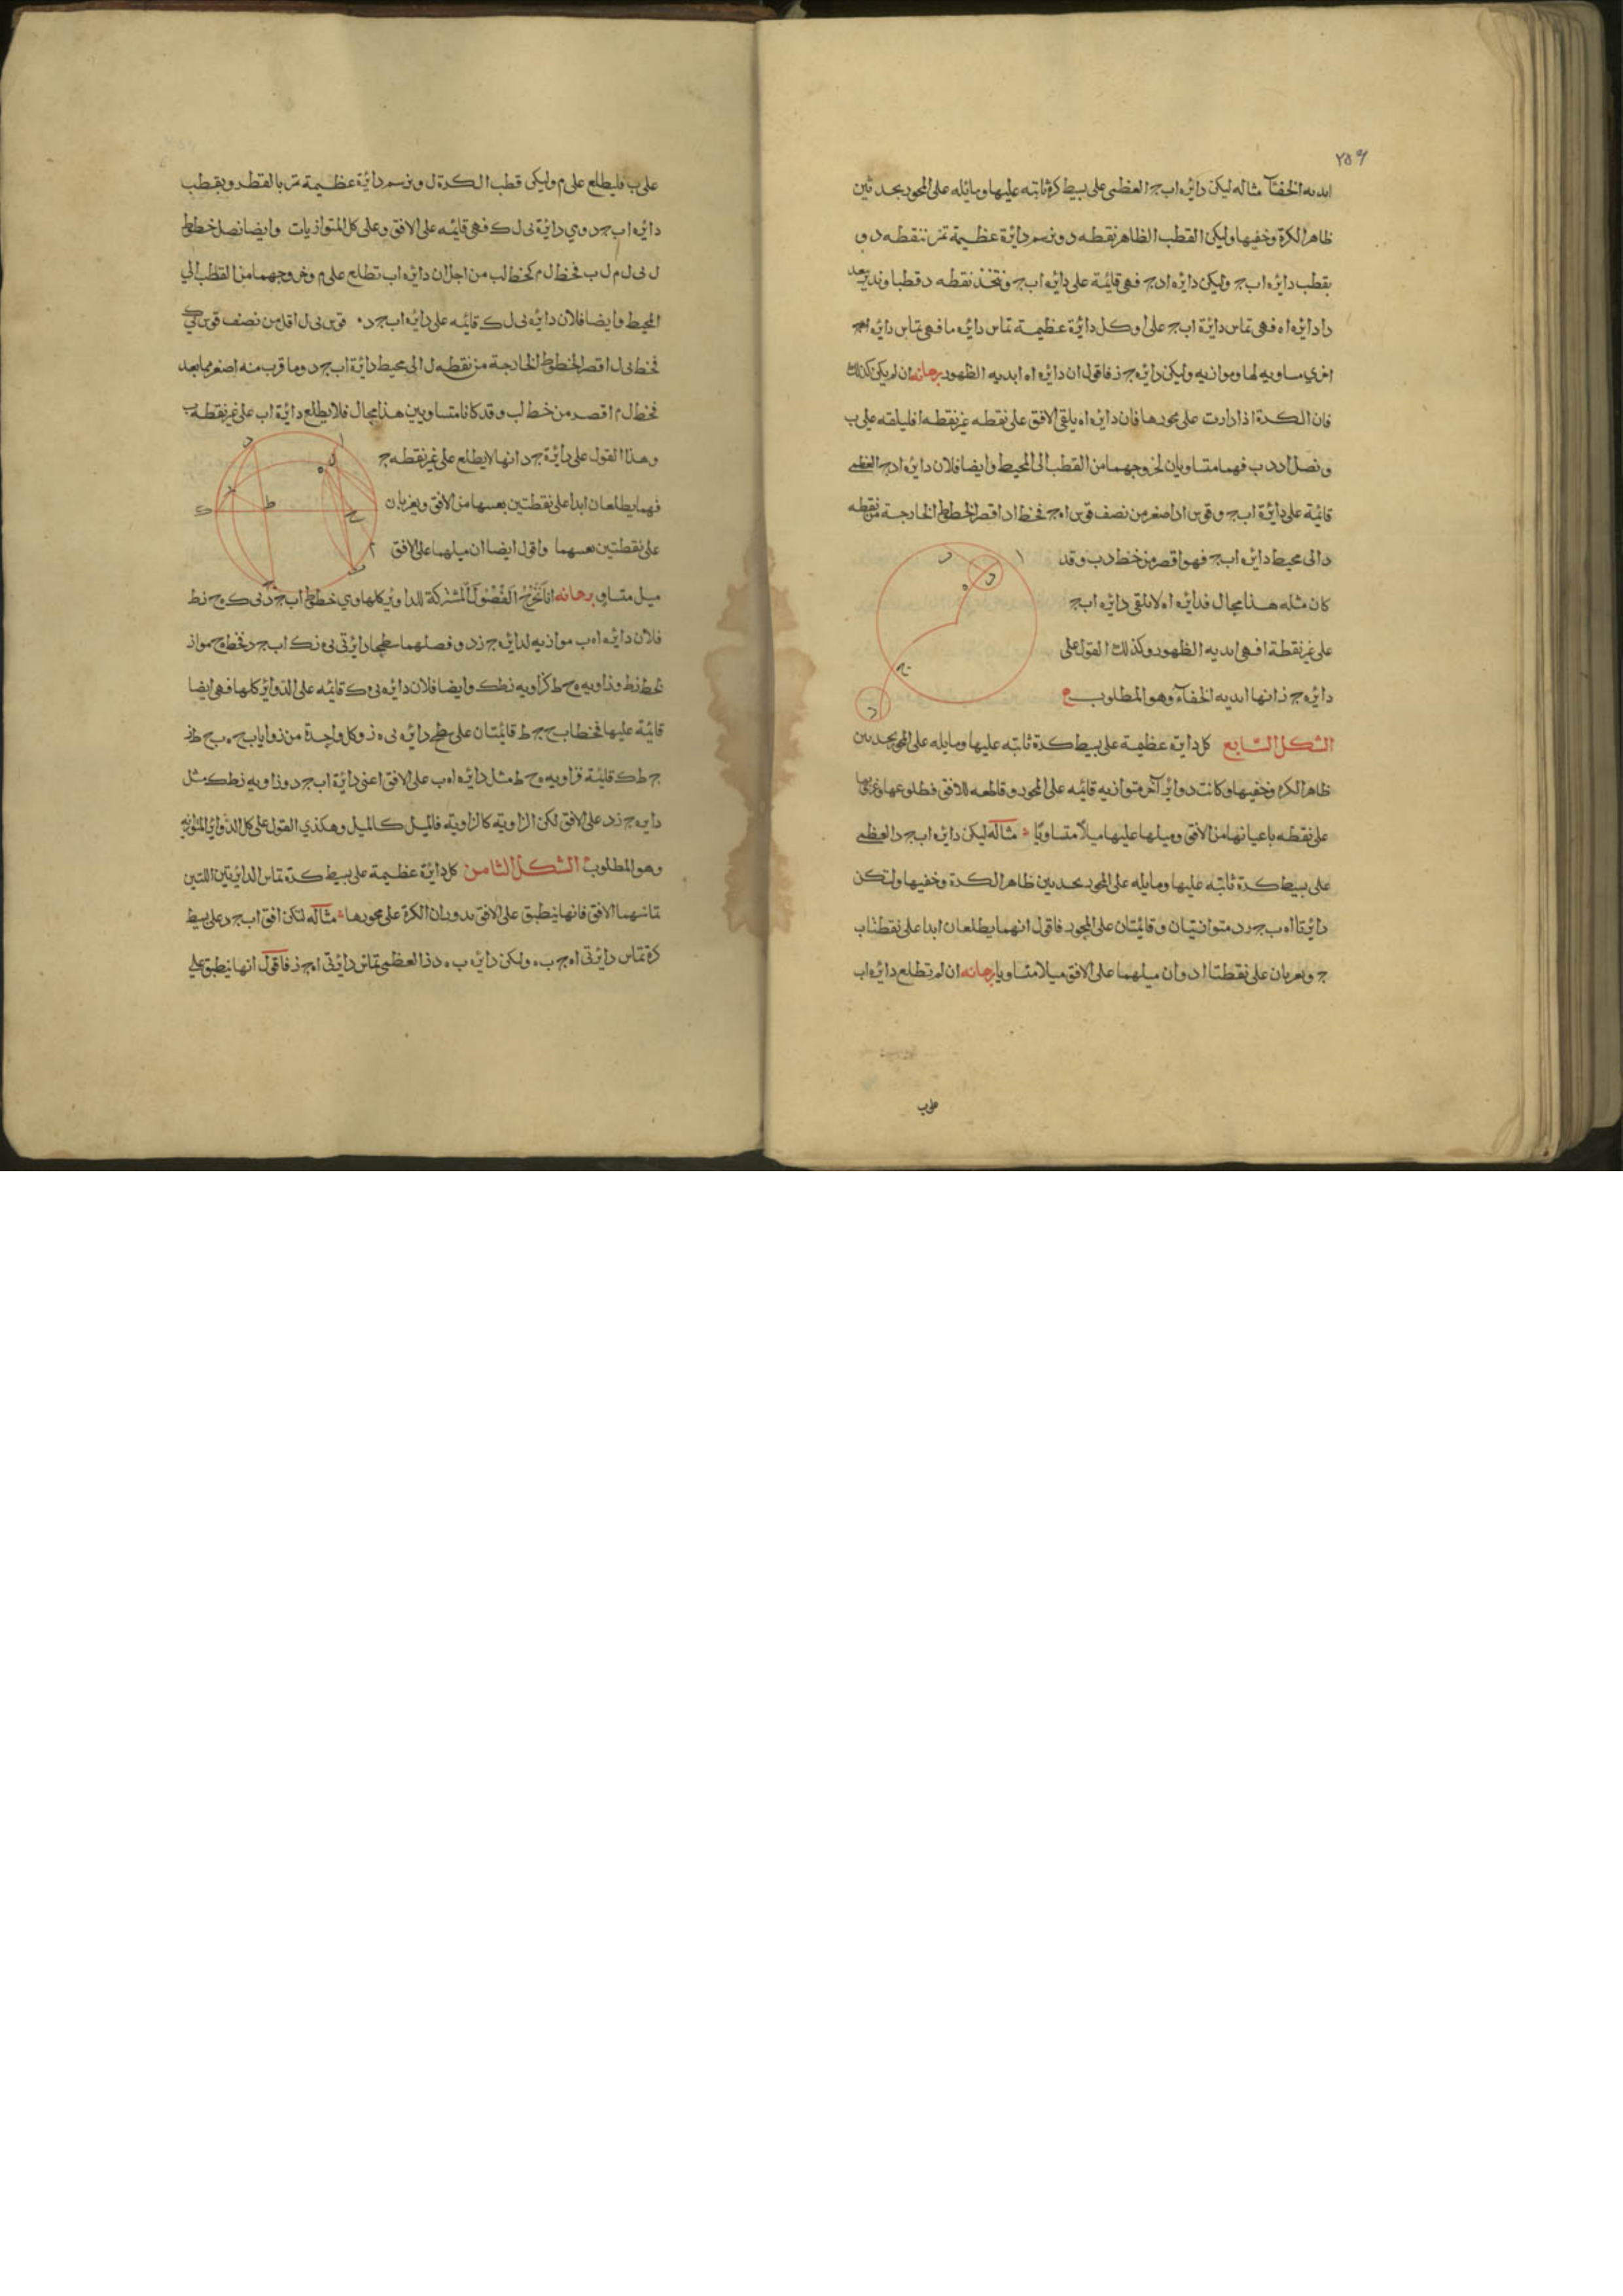 ٢٥٩
الخفآ مثاله ليكن دائره اب ج العظمى على بسيط كرة ثابته عليها ومائله على المحور بحد ثين
ظاهر الكرة وخفيها وليكن القطب الظاهر نقطه د ونرسم دائرة عظيمة تمر بنقطه د و
بقطب دائره اب ج وليكن دائره ا د ج فهي قائمة على دائره اب ج ونتخذ نقطه د قطبا وندير ببعد
د ا دائره ا ه فهي تماس دائرة اب ج على ا وكل دائرة عظيمة تماس دائره ما فهي تماس دائره
اخري مساويه لها وموازيه وليكن دائره ج ز فاقول ان دائره ا ه ابديه الظهور برهانه ان لم يكن كذلك
فان الكرة اذا دارت على محورها فان دائره ا ه يلقى الافق على نقطه غير نقطه ا فليلقه على ب
ونصل ا د د ب فهما متساويان لخروجهما من القطب الى المحيط وايضا فلان دائره ا د ج العظمى
قائمة على دائرة اب ج وقوس ا د اصغر من نصف قوس ا ه ج فخط ا د اقصر الخطوط الخارجة من نقطه
د الى محيط دائره اب ج فهو اقصر من خط د ب وقد
كان مثله هذا محال فدائره ا ه لا تلقى دائره اب ج
على غير نقطة ا فهي ابديه الظهور وكذلك القول على
دائره ج ز انها ابديه الخفآء وهو المطلوب
الشكل السابع كل دايرة عظيمة على بسيط كرة ثابته عليها ومايله على المحور بحدين
ظاهر الكرة وخفيها وكانت دوائر آخر متوازيه قائمه على المحور وقاطعه للافق فطلوعها وغروبها
على نقطه باعيانها من الافق وميلها عليها ميلا متساويا مثاله ليكن دائره اب ج د العظمى
على بسيط كرة ثابته عليها ومايله على المحور بحدين ظاهر الكرة وخفيها ولتكن
دائرتا ا ه ب ج ز د متوازيتيان وقائمتان على المحور فاقول انهما يطلعان ابدا على نقطتا ب
ج ويغربان على نقطتا ا د وان ميلهما على الافق ميلا متساويا برهانه ان لم تطلع دائره ا ب
على ب
على ب فليطلع على م وليكن قطب الكرة ل ونرسم دائرة عظيمة تمر بالقطر وبقطب
دائره اب ج د وي دائرة ى ل ك فهي قائمه على الافق وعلى كل المتوازيات وايضا نصل خطوط
ل ى ل م ل ب فخط ل م كخط لب من اجل ان دائره اب تطلع على م وخروجهما من القطب الي
المحيط وايضا فلان دائره ى ل ك قائمه على دائره اب ج د قوس ى ل اقل من نصف قوس
فخط ى ل اقصر الخطوط الخارجة من نقطه ل الى محيط دائرة اب ج د وما قرب منه اصغر مما بعد
فخط ل م اقصر من خط لب وقد كانا متساويين هذا محال فلا يطلع دائرة اب على غير نقطه ب
وهذا القول على دائرة ج د انها لا يطلع على غير نقطه ج
فهما يطلعان ابدا على نقطتين بعينها من الافق ويغربان
على نقطتين بعينهما واقول ايضا ان ميلهما على الافق
ميل متساو برهانه انا نخرج الفصول المشتركة للدواير كلها وي خطوط اب ج د ى ك ه ح ز ط
فلان دائره ا ه ب موازيه لدائره ج ز د وفصلهما سطحا دايرتى ى ه ز ك اب ج د فخط ح مواز
لخط ز ط وزاويه ه ح ط كزاويه ز ط ك وايضا فلان دائره ى ه ك قائمه على الدوائر كلها فهي ايضا
قائمة عليها فخطا ب ح ج ط قائمتان على سطح دائره ى ه ز وكل واحدة من زوايا ب ح ه ب ح ط ز
ج ط ك قائمة فزاويه ه ح ط مثل دائره ا ه ب على الافق اعنى دائرة اب ج د وزاويه ز ط ك مثل
دايره ج ز د على الافق لكن الزاوية كالزاوية فالميل كالميل وهكذي القول على كل الدوائر المتوازيه
وهو المطلوب الشكل الثامن كل دائرة عظيمة على بسيط كرة تماس الدايرتين اللتين
تماسهما الافق فانها ينطبق على الافق بدوران الكرة على محورها مثاله لتكن افق اب ج د على بسيط
كرة تماس دايرتى ا ه ج ب ولكن دائره ب ه د ز العظمى تماس دائرتى ا ه ج ز فاقول انها ينطبق على